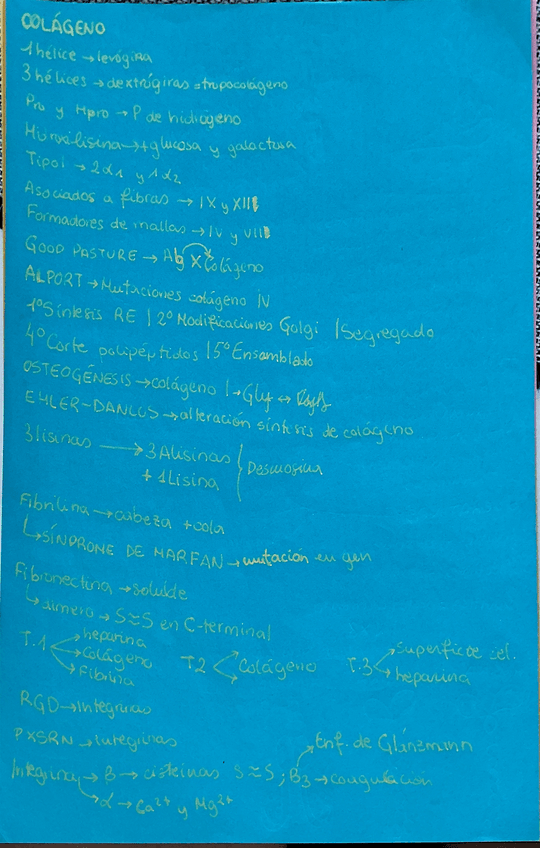 COLÁGENO
1 hélice → levógira
3 hélices → dextrógiras = tropocolágeno
Pro y Hpro → P de hidrógeno
Hidroxilisina → + glucosa y galactosa
Tipo I → 2α1 y 1α2
Asociados a fibras → IX y XII
Formadores de mallas → IV y VII
GOOD PASTURE → Ab x Colágeno
ALPORT → Mutaciones colágeno IV
1º Síntesis RE | 2º Modificaciones Golgi | Segregado
4º Corte polipéptidos | 5º Ensamblado
OSTEOGÉNESIS → colágeno I → Gly ↔
EHLER-DANLOS → alteración síntesis de colágeno
3 lisinas → 3 Alisinas
+ 1 Lisina } Desmosina
Fibrilina → cabeza + cola
↳ SÍNDRONE DE MARFAN → mutación en gen
Fibronectina → soluble
↳ dímero → S≈S en C-terminal
T.1 → heparina
→ Colágeno
→ Fibrina
T.2 → Colágeno
T.3 → superficie cel.
→ heparina
RGD → Integrinas
PXSRN → Integrinas
Enf. de Glánzmann
Integrina → β → cisteínas S≈S ; β3 → coagulación
↳ α → Ca2+ y Mg2+